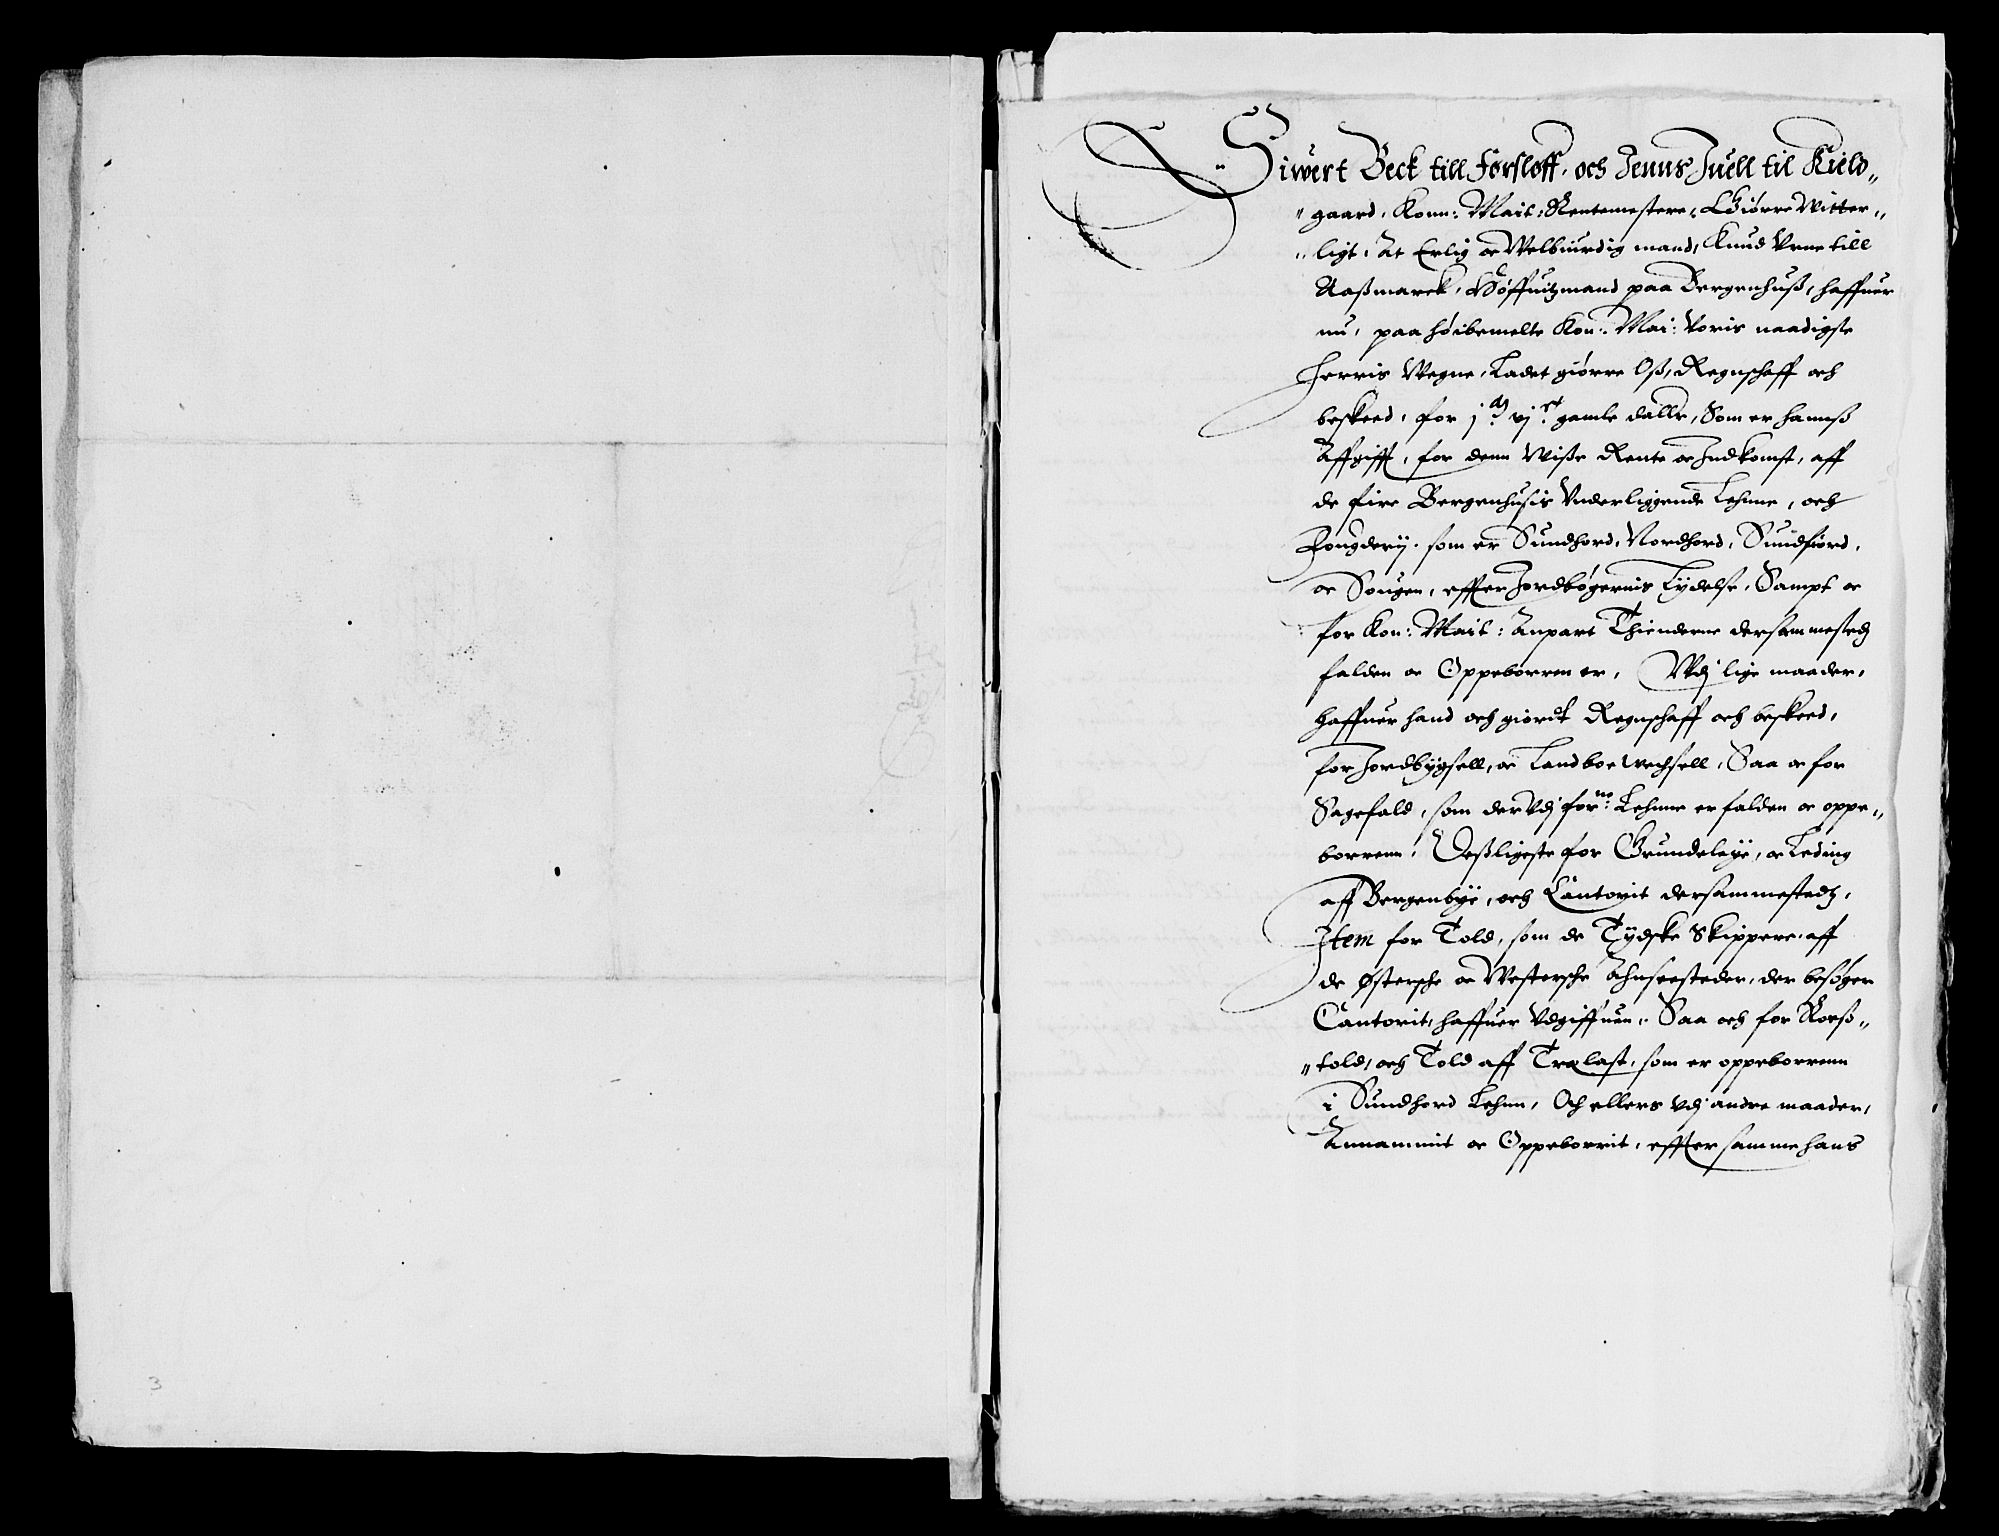 Siwert Beck till Førsløff, och Jenns Juell til Kield„
„gaard, Konn: Maits: Rentemestere, Giørre Witter„
„ligt, At Erlig oc Welbiurdig mand, Knud Vrne till
Aaßmarck, Høffuitzmand paa Bergenhuß, haffuer
nu, paa høibemelte Kon: Mai: Voris naadigste
Herris Wegne, Ladet giørre Oß, Regnschaff och
beskeed, for j.M vj.ct gamle dallr, Som er hanns
Affgifft, for denn Wiße Rente oc Indkomst, aff
de fire Bergenhusis Vnderliggende Lehnne, och
Fougderij. som er Sundhord, Nordhord, Sundfiord,
oc Sougen, effter Jordbøgernis Lydelse, Sampt oc
for Kon: Maits: Anpart Thienderne dersammestedz
falden oc Oppeborren er, Vdj lige maader,
haffuer hand och giordt Regnschaff och beskeed,
for Jordbygsell, oc Landboe wechsell, Saa oc for
Sagefald, som der vdj forne: Lehnne er falden oc oppe„
borrenn, Deßligeste for Grundeleye, oc Leding
aff Bergenbye, och Cantorit dersammestedtz,
Item for Told, som de Tydske Skippere, aff
de Østersche oc Westersche Ahnseesteder, der besøger
Cantorit, haffuer Vdgiffuen, Saa och for Roerß„
„told, och Told aff Trælast, som er oppeborrenn
i Sundhord Lehnn, Och ellers vdj andre maader,
Annammit oc Oppeborrit, effter samme hans
3